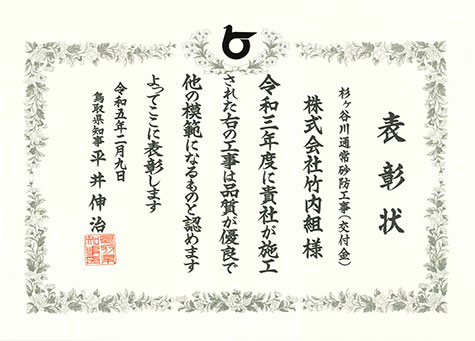 表彰状
杉ヶ谷川通常砂防工事(交付金)
株式会社竹内組 様
令和三年度に貴社が施工
された右の工事は品質が優良で
他の模範になるものと認めます
よってここに表彰します
令和五年二月九日
鳥取県知事 平井伸治